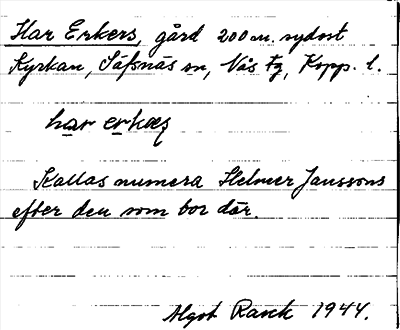 Har Erkers, gård 200 m. sydost
Kyrkan, Säfsnäs sn, Nås Fg, Kopp. l.
har erkæș
Kallas numera Helmer Janssons
efter den som bor där.
Algot Rask 1944.